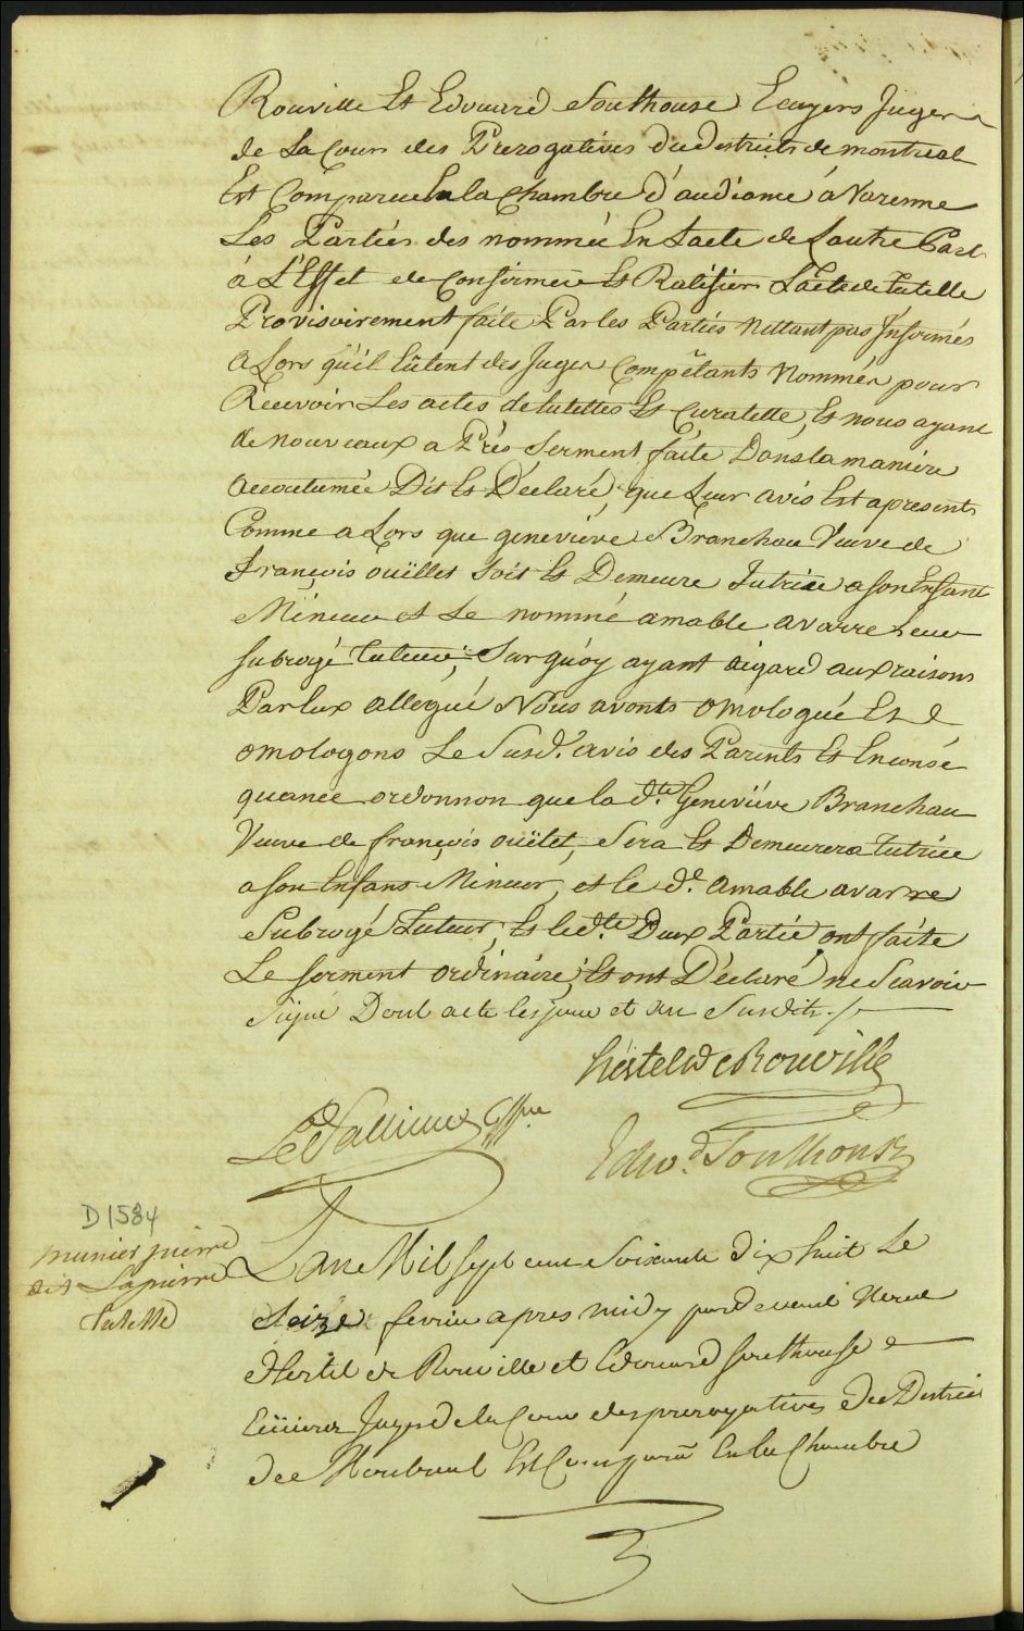 Rouville Et Edouard Southouse Ecuyers Juger
de La Cour des Prerogatives du districts de montreal
Est Comparue En la Chambre d'audiance á Varenne
Les Partiés des nommée En Lacte de Lautre Part
á L'Effet de Confirmer Et Ratifier L'acte de tutelle
Provisoirement faite Par les Partiés Nettant pas Informés
a Lors quèil Eûtent des Juger Compêtants Nommér pour
Recevoir Les actes de tutelles Et Curatelle, Et nous ayant
de nouveaux a Prés Serment faite Dans la maniere
accoutumée Dit Et Déclaré, que Leur avis Est apresents
Comme a Lors que geneviéve Branchau Veuve de
françois ouïlles soit Et Demeure Tutrice a son Enfant
Mineur et Le nommé amable avarre Leur
subrogé tuteur, Sur quóy ayant aigard aux raisons
Par Eux allegué Nous avonts omologué Et
omologons Le Susd.t avis des Parents Et En consé
quance ordonnon que la d.te Genevieve Branchau
Veuve de françois ouïlet, Sera Et Demeurera tutrice
a son Enfans Mineur, et le d.t amable avarre
Subrogé Tuteur, Et Le d.te Deux Partié ont faite
Le serment ordináire, Et ont Déclaré ne Scavoir
Signé Dont acte les jour et an Susdits ./.
hertel de Rouville
Edw.d Southouse
D1584
munier pierre
dit Lapierre
Tutelle
L'an Mil sept cent Soixante dix huit Le
Seize fevrier apres midy pardevent Nerue
Hertel de Rouville et Edouard Southouse
Ecuiers Juges de la Cour des prerogatives du District
de Montreal Est Comparu En la Chambre